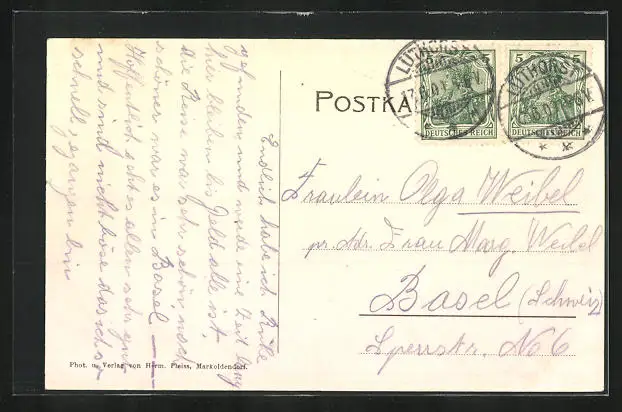 Endlich habe ich Ruhe
gefunden, und werde eine Zeit lang
hier bleiben bis Geld alle ist.
die Reise war sehr schön noch
schöner war es in Basel
Hoffentlich geht es allen sehr gut
und sind nicht böse das ich so
schnell gegangen bin
POSTKA
LÜTHORST
LÜTHORST
5 5
5 5
DEUTSCHES REICH
DEUTSCHES REICH
Fräulein Olga Weibel
pr. Adr. Frau Marg. Weibel
Basel (Schweiz)
Sperrstr. No 6
Phot. u. Verlag von Herm. Pleiss, Markoldendorf.